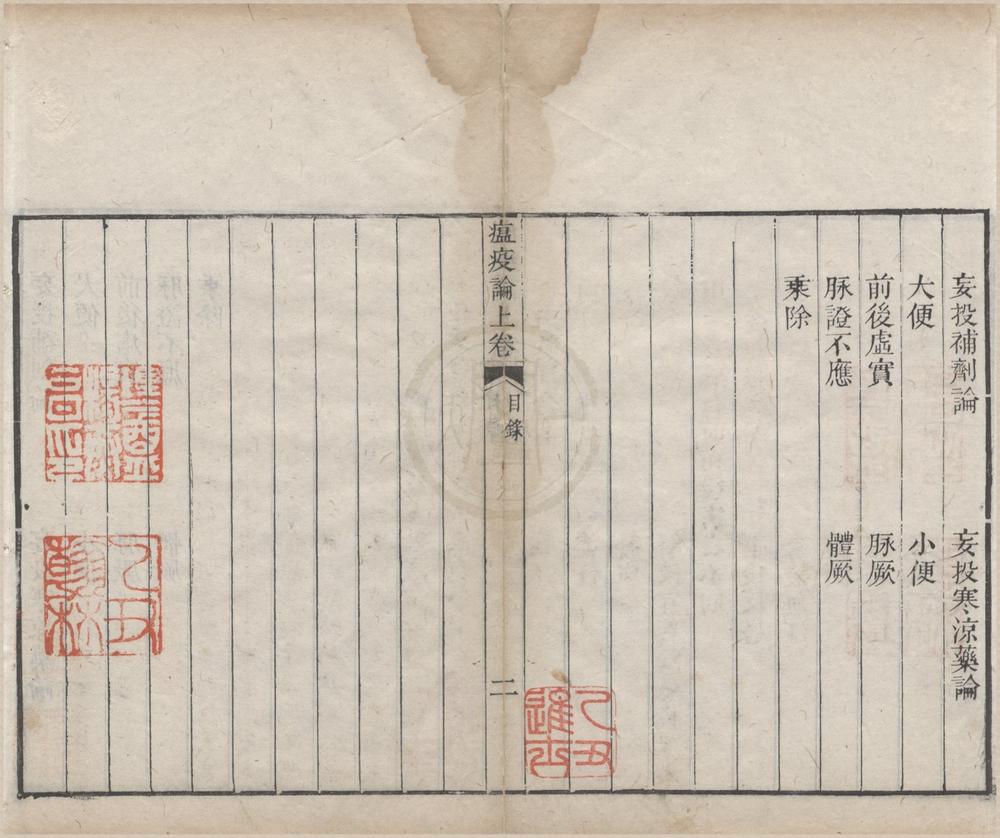 妄投補劑論　妄投寒涼藥論
大便　小便
前後虛實　脉厥
脉證不應　體厥
乘除
瘟疫論上卷　目錄　二